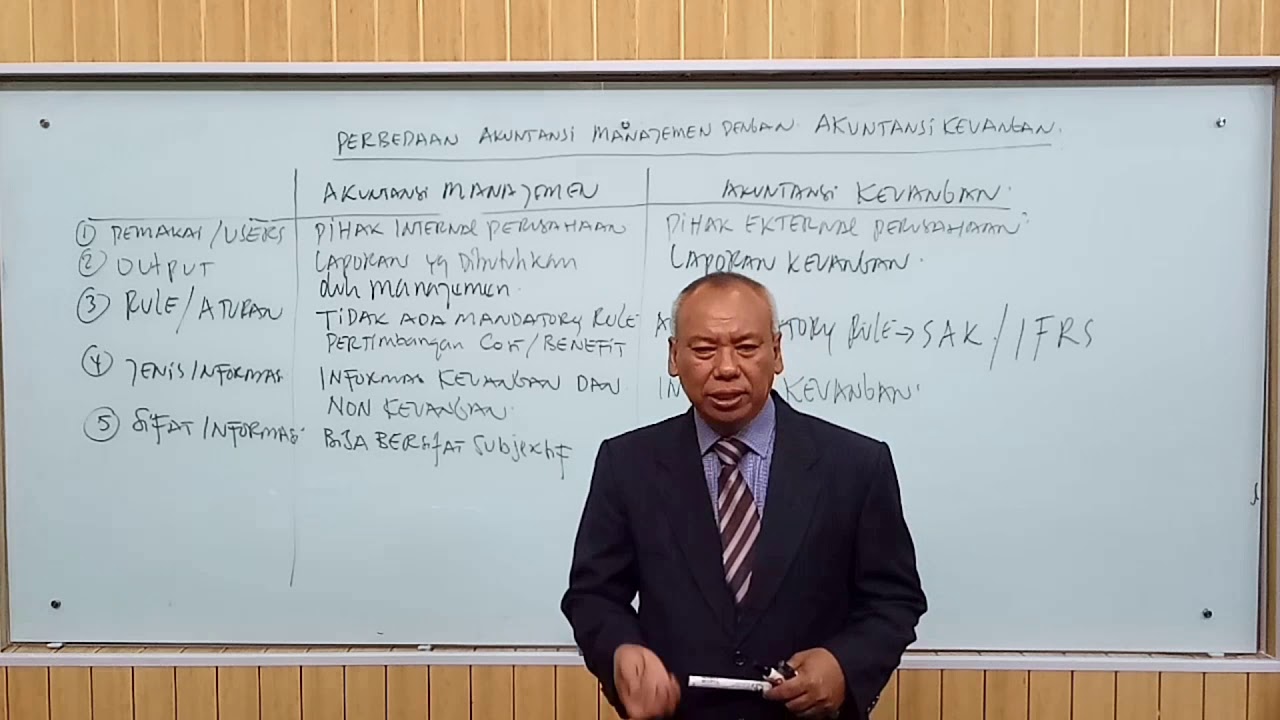 PERBEDAAN AKUNTANSI MANAJEMEN DENGAN AKUNTANSI KEUANGAN.
AKUNTANSI MANAJEMEN
AKUNTANSI KEUANGAN.
① PEMAKAI/USERS PIHAK INTERNAL PERUSAHAAN PIHAK EKTERNAL PERUSAHAAN
② OUTPUT LAPORAN yg Dibutuhkan LAPORAN KEUANGAN.
oleh manajemen.
③ RULE/ATURAN TIDAK ADA MANDATORY RULE RULE → SAK/IFRS
PERTIMBANGAN COST/BENEFIT
④ JENIS INFORMASI INFORMASI KEUANGAN DAN KEUANGAN.
NON KEUANGAN.
⑤ SIFAT INFORMASI BISA BERSIFAT Subjektif